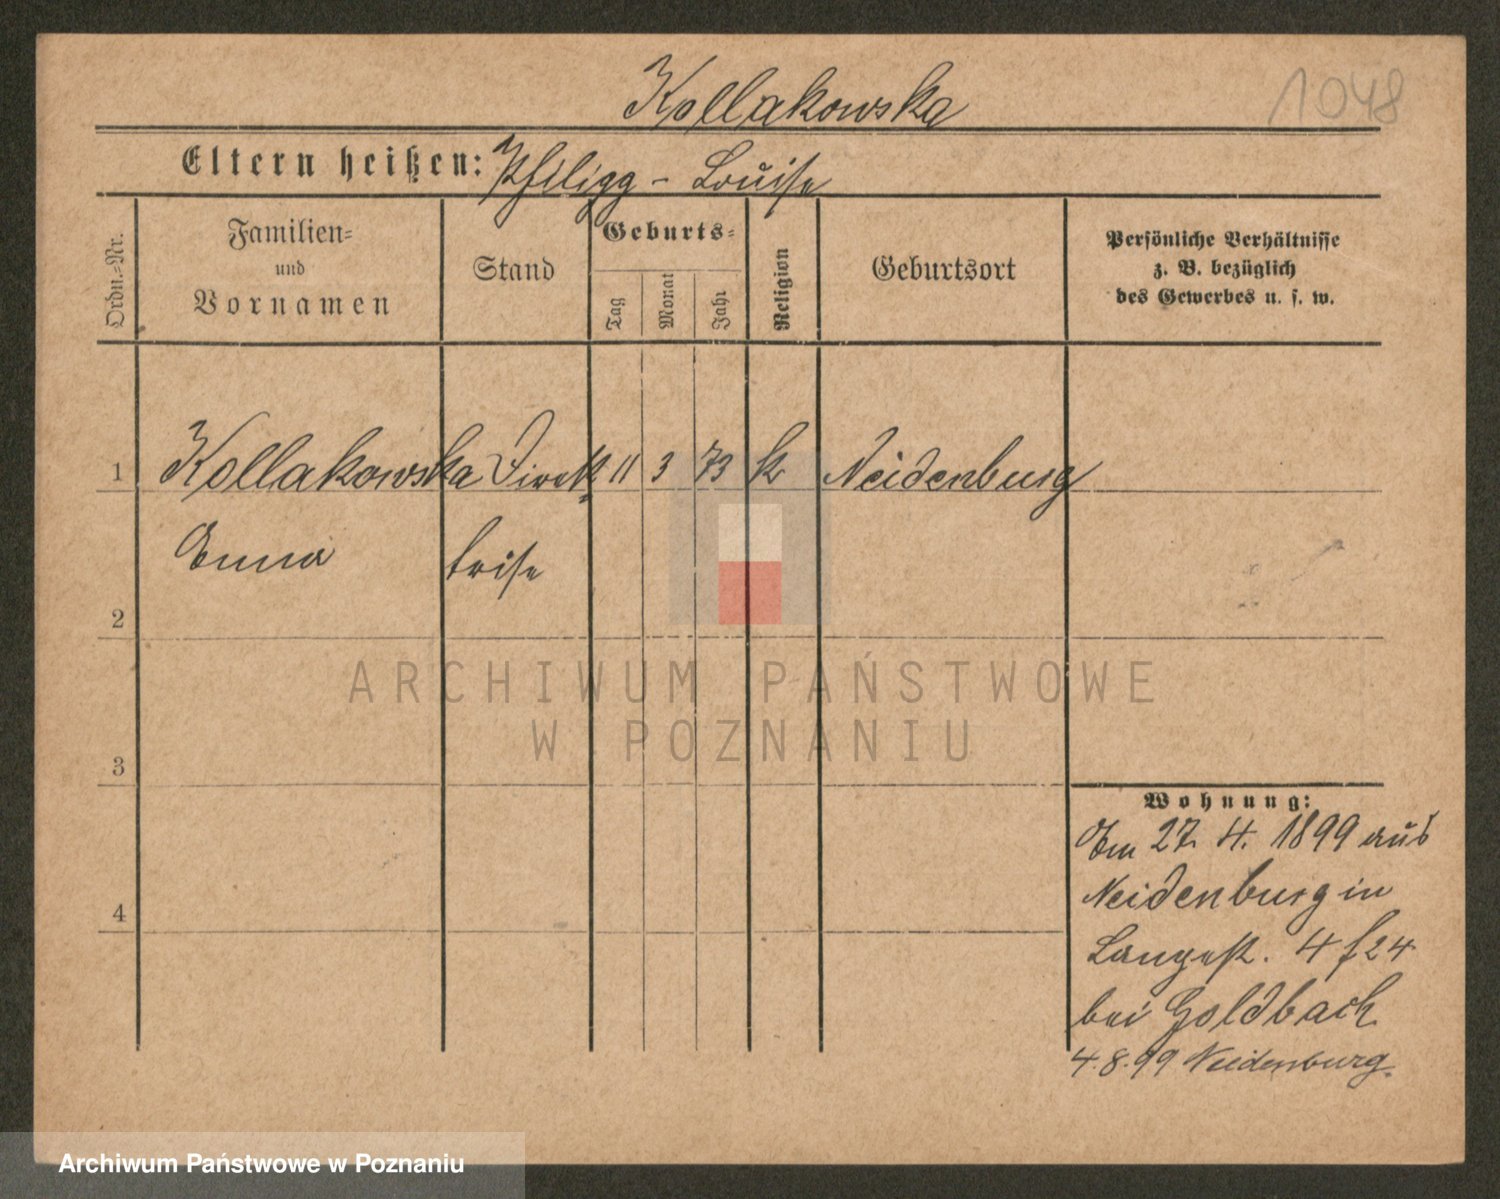 Kollakowska
1048
Eltern heißen: Philipp - Louise
Ordn.-Nr.
Familien-
und
Vornamen
Stand
Geburts-
Tag
Monat
Jahr
Religion
Geburtsort
Persönliche Verhältnisse
z. B. bezüglich
des Gewerbes u. s. w.
1 Kollakowska Direk 11 3 73 k Neidenburg
Emma trise
2
3
4
Wohnung:
Em 27. 4. 1899 aus
Neidenburg in
Langestr. 4 f 24
bei Goldbach
4.8.99 Neidenburg.
ARCHIWUM PAŃSTWOWE
W POZNANIU
Archiwum Państwowe w Poznaniu